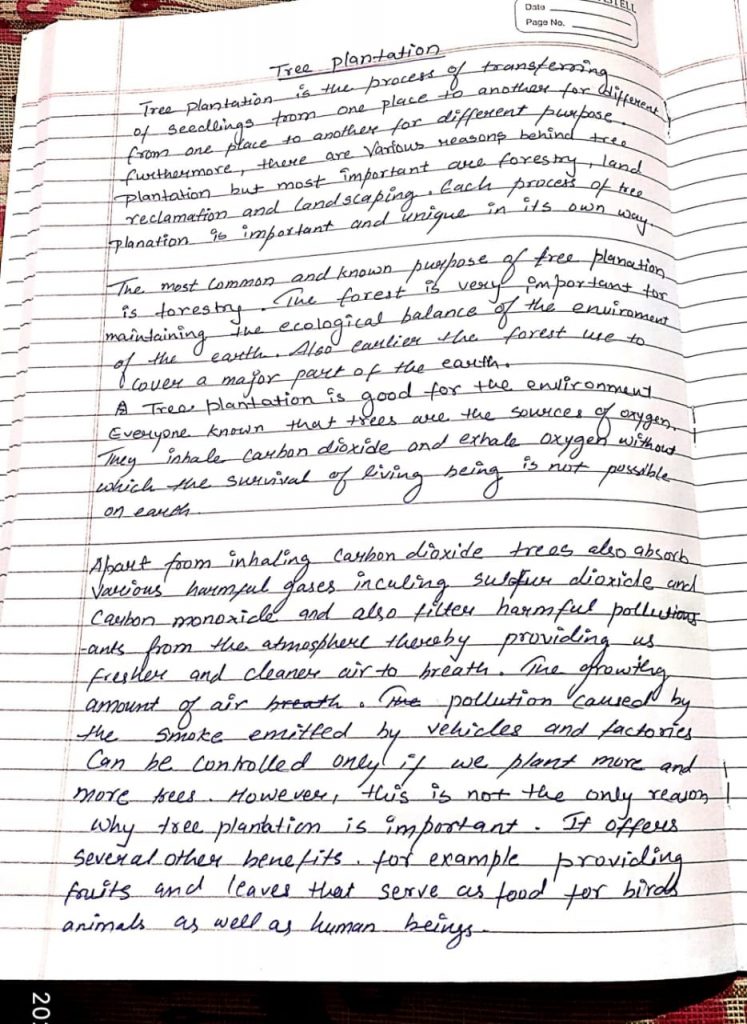 Date
Page No.
Tree plantation
Tree plantation is the process of transferring
of seedlings from one place to another for different
from one place to another for different purpose.
furthermore, there are various reasons behind tree
plantation but most important are forestry, land
reclamation and landscaping. Each process of tree
planation is important and unique in its own way
The most common and known purpose of tree planation
is forestry. The forest is very important for
maintaining the ecological balance of the enviroment
of the earth. Also earlier the forest use to
cover a major part of the earth.
A Tree plantation is good for the environment
Everyone known that trees are the sources of oxygen.
They inhale carbon dioxide and exhale oxygen without
which the survival of living being is not possible
on earth.
Apart from inhaling carbon dioxide trees also absorb
various harmful gases inculing sulfur dioxide and
carbon monoxide and also filter harmful pollutions
-ants from the atmosphere thereby providing us
fresher and cleaner air to breath. The growing
amount of air breath. The pollution caused by
the smoke emitted by vehicles and factories
Can be controlled only if we plant more and
more trees. However, this is not the only reason
why tree plantation is important. It offers
several other benefits. for example providing
fruits and leaves that serve as food for birds
animals as well as human beings.
20